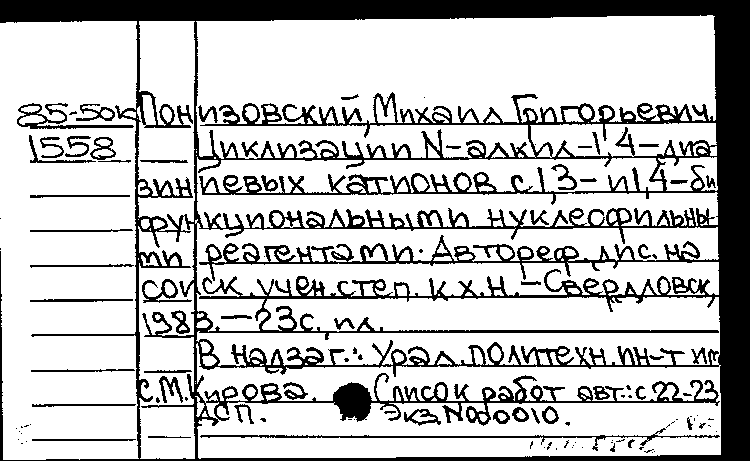 85-50к Понизовский, Михаил Григорьевич.
1558 Циклизации N-алкил-1,4-диа-
зиниевых катионов с 1,3- и 1,4-би
функциональными нуклеофильны-
ми реагентами. Автореф. дис. на
соиск. учен. степ. к. х. н. – Свердловск,
1983. – 23 с. ил.
В надзаг.: Урал. политехн. ин-т им
С. М. Кирова. Список работ авт.: с. 22-23
ДСП. Экз. №00010.